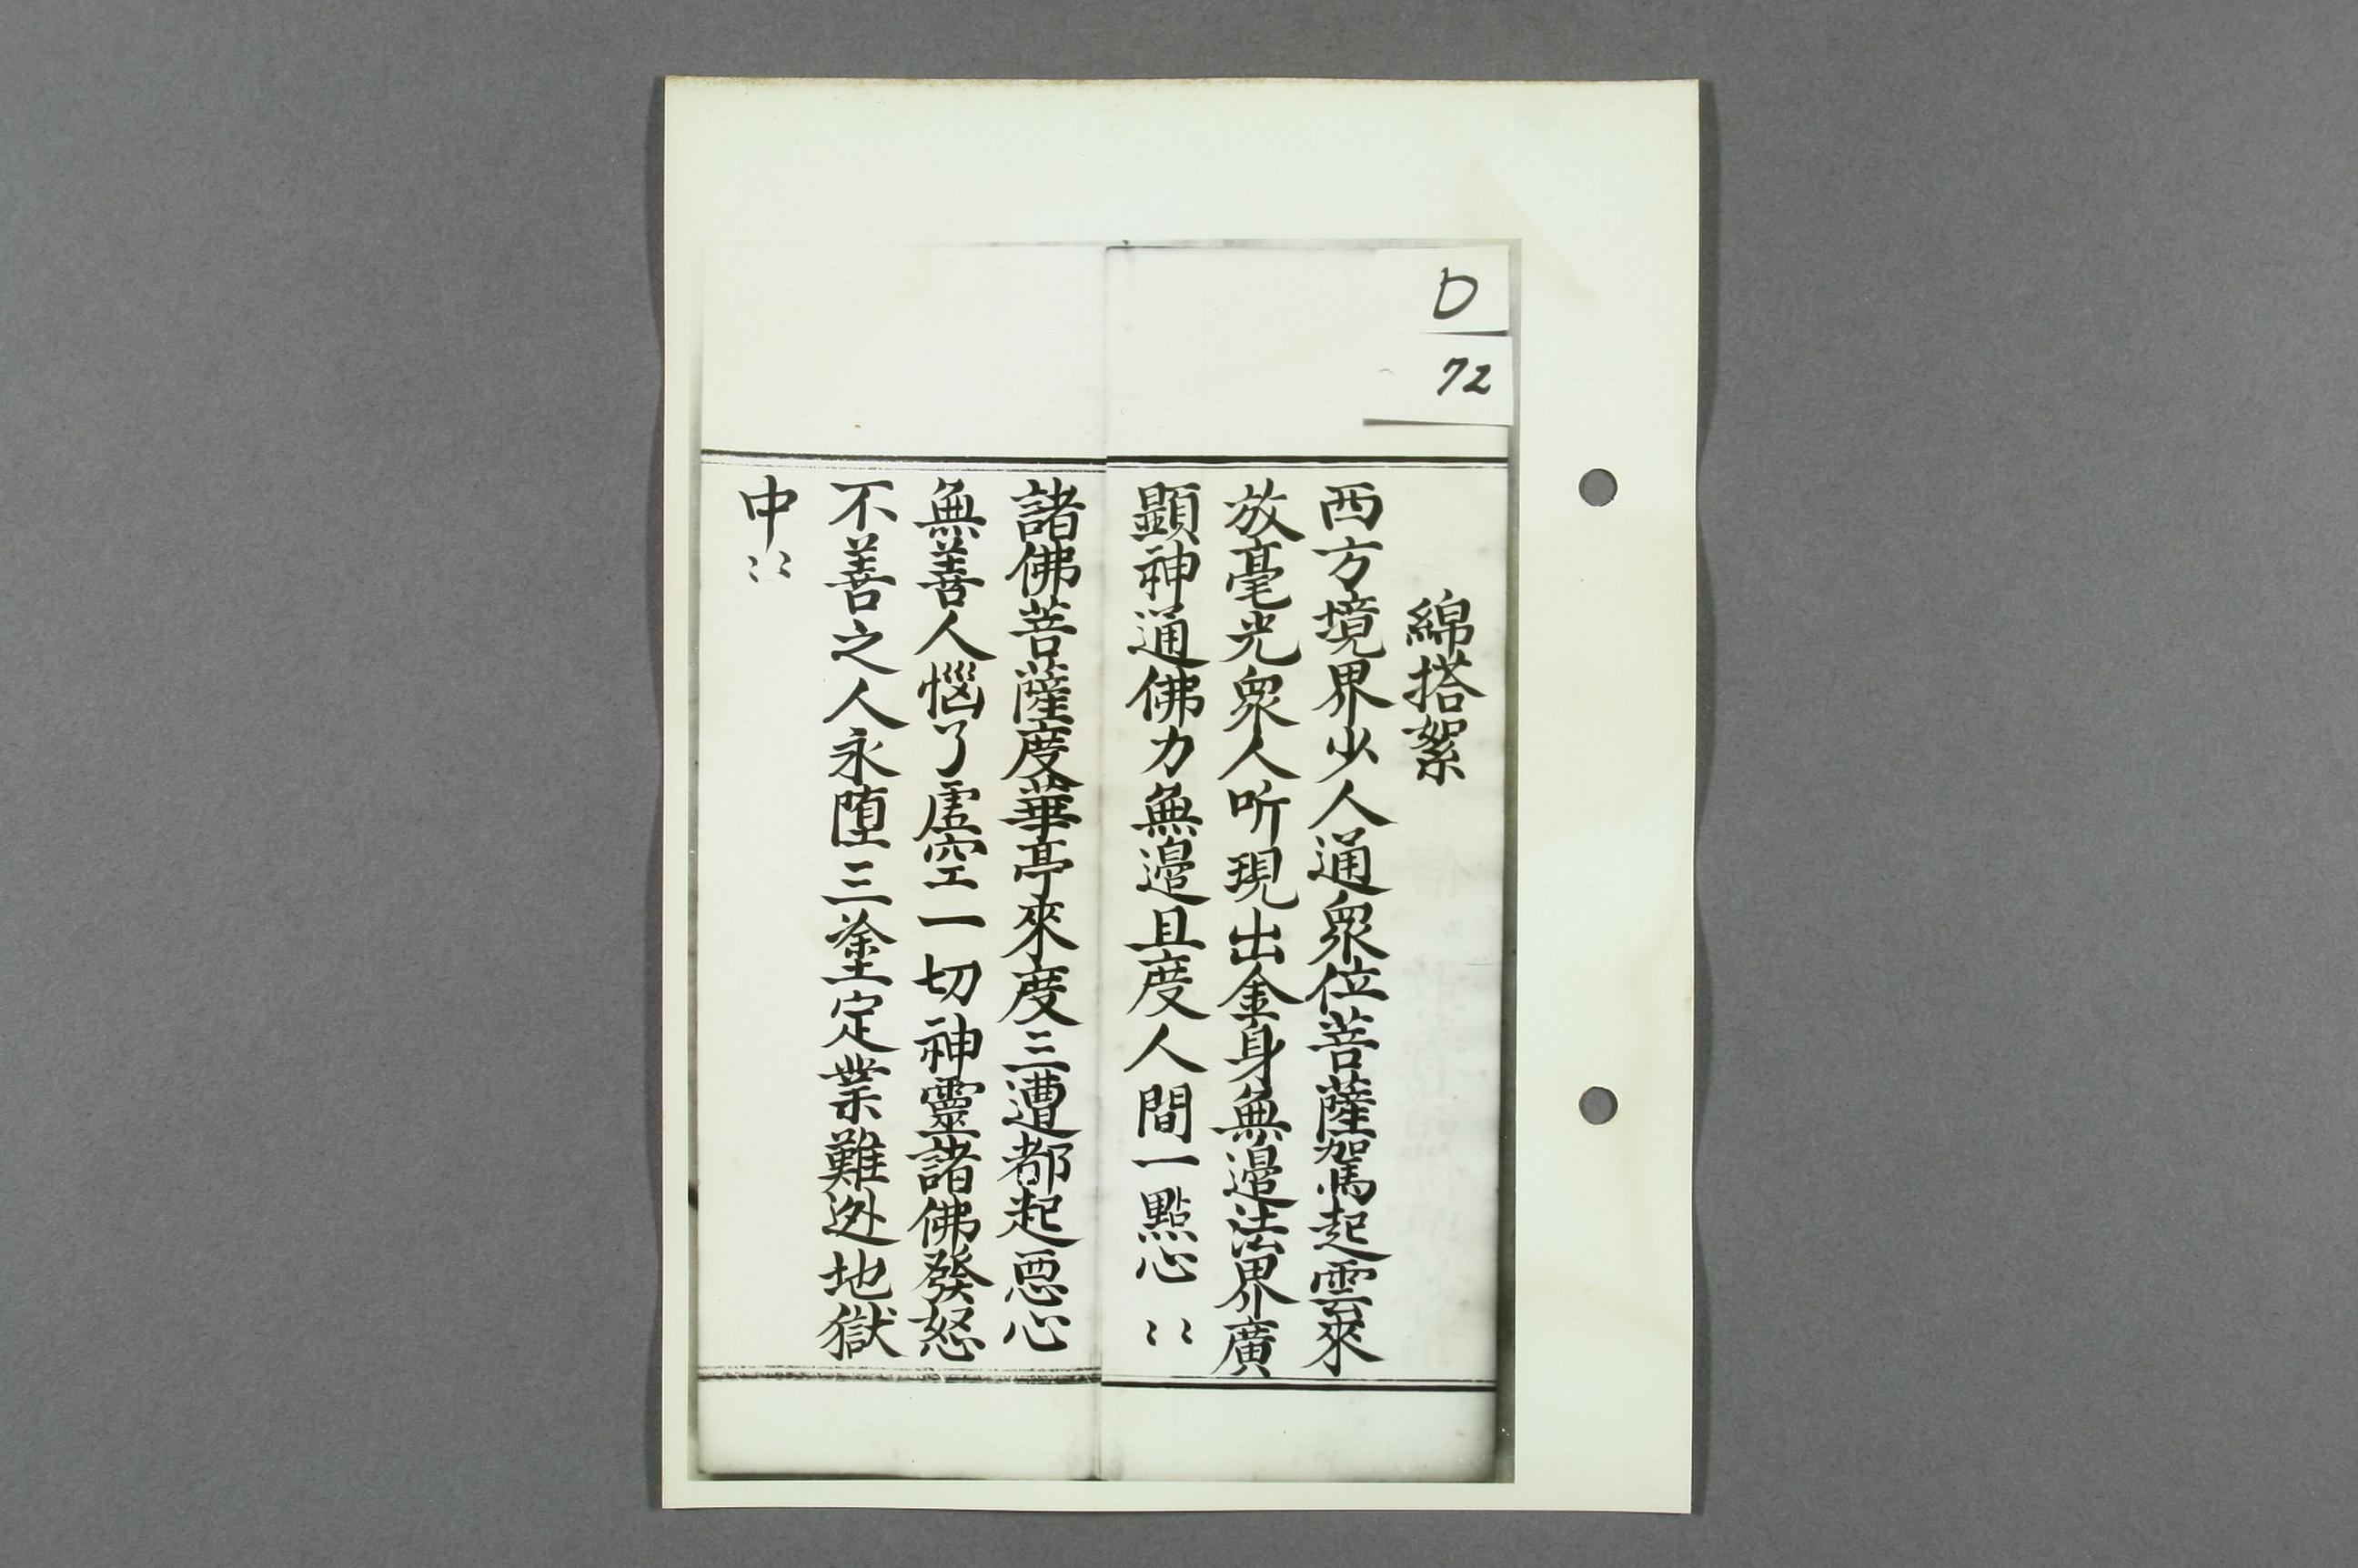 D
72
綿搭絮
西方境界少人通衆位菩薩駕起雲來
放毫光衆人听現出金身無邉法界廣
顕神通佛力無邉且度人間一點心〻〻
諸佛菩薩度華亭來度三遭都起恶心
無善人惱了虚空一切神靈諸佛發怒
不善之人永堕三塗定業難迯地獄
中〻〻